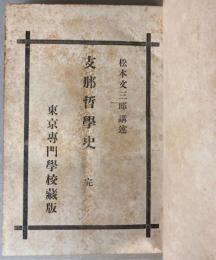 松本文三郎講述
支那哲學史 完
東京専門學校藏版